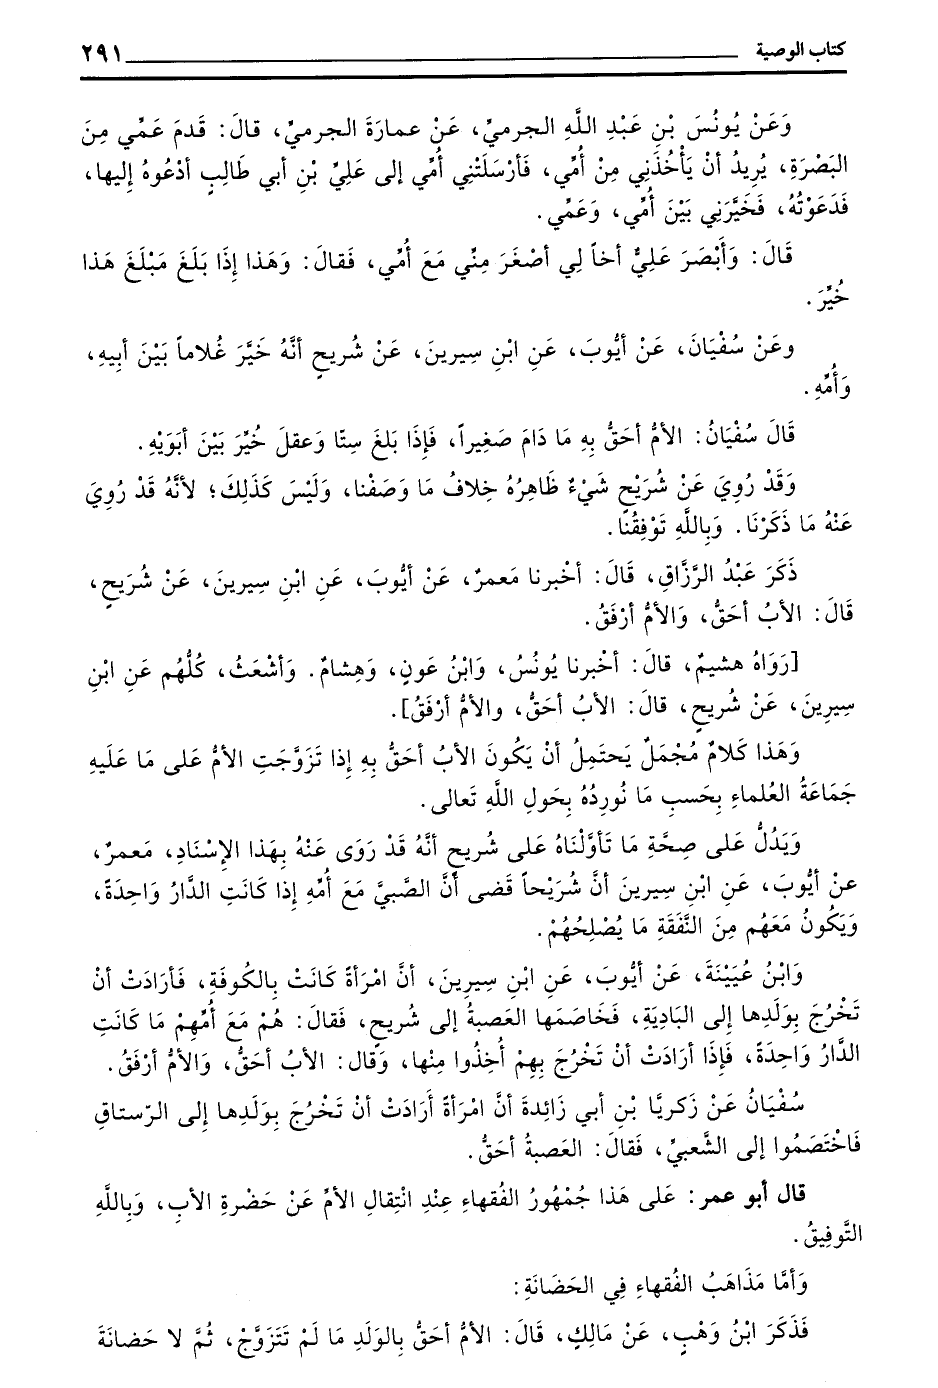 كتاب الوصية ٢٩١
وَعَنْ يُونُسَ بْنِ عَبْدِ اللَّهِ الجرميِّ، عَنْ عمارَةَ الجرميِّ، قالَ: قَدمَ عَمِّي مِنَ
البَصْرَةِ، يُرِيدُ أنْ يَأْخُذَنِي مِنْ أُمِّي، فَأرْسَلَتْنِي أُمِّي إلى عَلِيِّ بْنِ أبي طَالِبٍ أدْعُوهُ إليها،
فَدَعَوْتُهُ، فَخَيَّرَنِي بَيْنَ أُمِّي، وَعَمِّي.
قَالَ: وَأَبْصَرَ عَلِيٌّ أخاً لِي أصْغَرَ مِنِّي مَعَ أُمِّي، فَقالَ: وَهَذا إِذَا بَلَغَ مَبْلَغَ هَذا
خُيِّرَ.
وعَنْ سُفْيَانَ، عَنْ أيُّوبَ، عَنِ ابْنِ سِيرينَ، عَنْ شُريحٍ أنَّهُ خَيَّرَ غُلاماً بَيْنَ أبيهِ،
وَأُمِّهِ.
قَالَ سُفْيَانُ: الأمُّ أحَقُّ بِهِ مَا دَامَ صَغِيراً، فَإِذَا بَلغَ ستًا وَعقلَ خُيِّرَ بَيْنَ أبَوَيْهِ.
وَقَدْ رُوِيَ عَنْ شُرَيْحٍ شَيْءٌ ظَاهِرُهُ خِلافُ مَا وَصَفْنا، وَلَيْسَ كَذَلِكَ؛ لأنَّهُ قَدْ رُوِيَ
عَنْهُ مَا ذَكَرْنَا. وَبِاللَّهِ تَوْفِقُنَا.
ذَكَرَ عَبْدُ الرَّزَّاقِ، قَالَ: أخْبرنا مَعمرٌ، عَنْ أيُّوبَ، عَنِ ابْنِ سِيرينَ، عَنْ شُرَيحٍ،
قَالَ: الأبُ أحَقُّ، وَالأمُّ أرْفَقُ.
[رَوَاهُ هشيمٌ، قالَ: أخْبرنا يُونُسُ، وَابْنُ عَونٍ، وَهِشامٌ. وَأشْعَثُ، كُلُّهُم عَنِ ابْنِ
سِيرِينَ، عَنْ شُريحٍ، قالَ: الأبُ أحَقُّ، والأمُّ أرْفَقُ].
وَهَذا كَلامٌ مُجْمَلٌ يَحتَمِلُ أنْ يَكُونَ الأبُ أحَقُّ بِهِ إِذا تَزَوَّجَتِ الأمُّ عَلى مَا عَلَيهِ
جَمَاعَةُ العُلماءِ بِحَسبِ مَا نُورِدُهُ بِحَولِ اللَّهِ تَعالى.
وَيَدُلُّ عَلى صِحَّةِ مَا تَأوَّلْنَاهُ عَلى شُريحٍ أنَّهُ قَدْ رَوَى عَنْهُ بِهَذا الإِسْنَادِ، مَعمرٌ،
عنْ أيُّوبَ، عَنِ ابْنِ سِيرينَ أنَّ شُرَيْحاً قَضى أنَّ الصَّبيَّ مَعَ أُمِّهِ إذا كَانَتِ الدَّارُ وَاحِدَةً،
وَيَكُونُ مَعَهُم مِنَ النَّفَقَةِ مَا يُصْلِحُهُمْ.
وَابْنُ عُيَيْنَةَ، عَنْ أيُّوبَ، عَنِ ابْنِ سِيرينَ، أنَّ امْرَأةً كَانَتْ بِالكُوفَةِ، فَأرَادَتْ أنْ
تَخْرُجَ بِوَلَدِها إلى البَادِيَةِ، فَخَاصَمَها العَصبةُ إلى شُريحٍ، فَقالَ: هُمْ مَعَ أمِّهِمْ مَا كَانَتِ
الدَّارُ وَاحِدَةً، فَإِذَا أرَادَتْ أنْ تَخْرُجَ بِهِمْ أُخِذُوا مِنْها، وَقَال: الأبُ أحَقُّ، وَالأمُّ أرْفَقُ.
سُفْيَانُ عَنْ زَكريَّا بْنِ أبي زَائِدةَ أنَّ امْرَأةً أَرَادَتْ أنْ تَخْرُجَ بِوَلَدِها إلى الرّستاقِ
فَاخْتَصَمُوا إلى الشَّعبيِّ، فَقَالَ: العَصبةُ أحَقُّ.
قال أبو عمر: عَلى هَذا جُمْهُورُ الفُقهاءِ عِنْدِ انْتِقالِ الأمِّ عَنْ حَضْرةِ الأبِ، وَبِاللَّهِ
التَّوفِيقُ.
وَأمَّا مَذَاهَبُ الفُقهاءِ فِي الحَضَانَةِ:
فَذَكَرَ ابْنُ وَهْبٍ، عَنْ مَالِكٍ، قَالَ: الأمُّ أحَقُّ بِالوَلَدِ مَا لَمْ تَتَزَوَّجْ، ثُمَّ لا حَضانَةَ